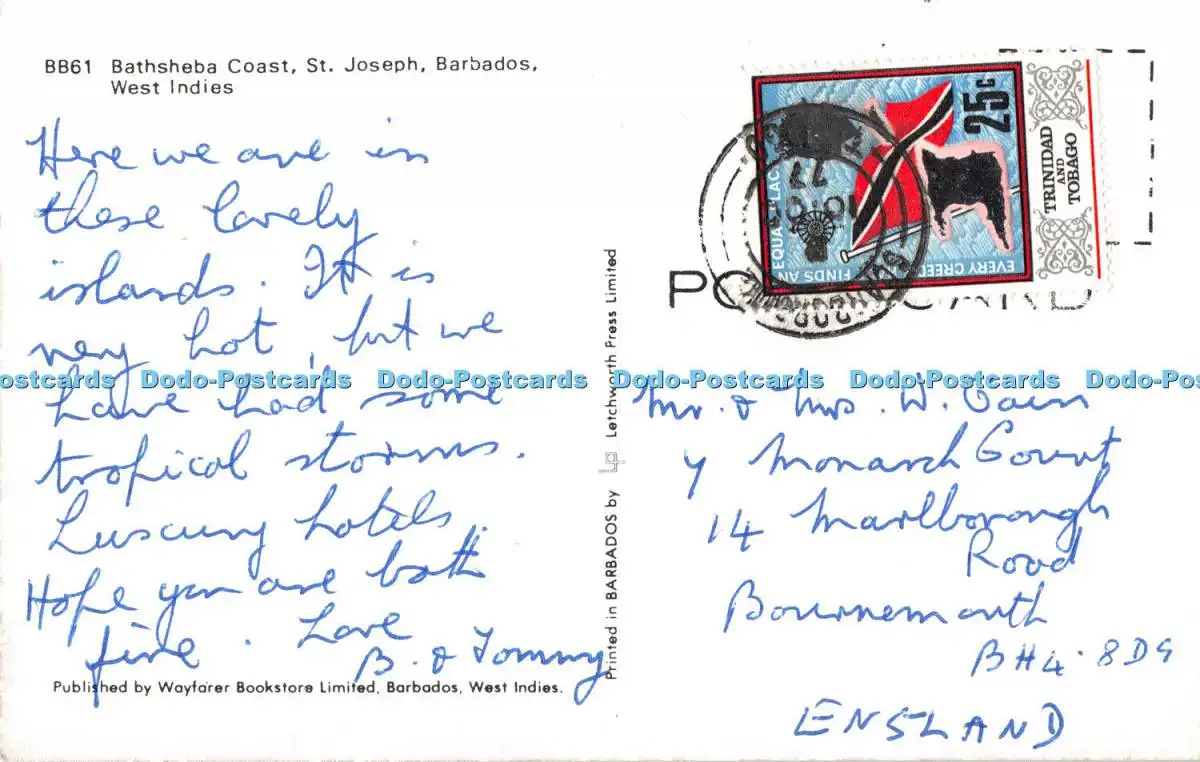 BB61 Bathsheba Coast, St. Joseph, Barbados,
West Indies
Here we are in
these lovely
islands. It is
very hot, but we
have had some
tropical storms.
Luxury hotels.
Hope you are both
fine. Love
B. & Tommy
Published by Wayfarer Bookstore Limited, Barbados, West Indies.
Printed in BARBADOS by Letchworth Press Limited
25c
TRINIDAD
AND
TOBAGO
EVERY CREED
FINDS AN
EQUAL PLAC
POST CARD
Mr. & Mrs. W. Cain
7 Monarch Court
14 Marlborough
Road
Bournemouth
BH4.8DG
ENGLAND
Dodo-Postcards Dodo-Postcards Dodo-Postcards Dodo-Postcards Dodo-Postcards